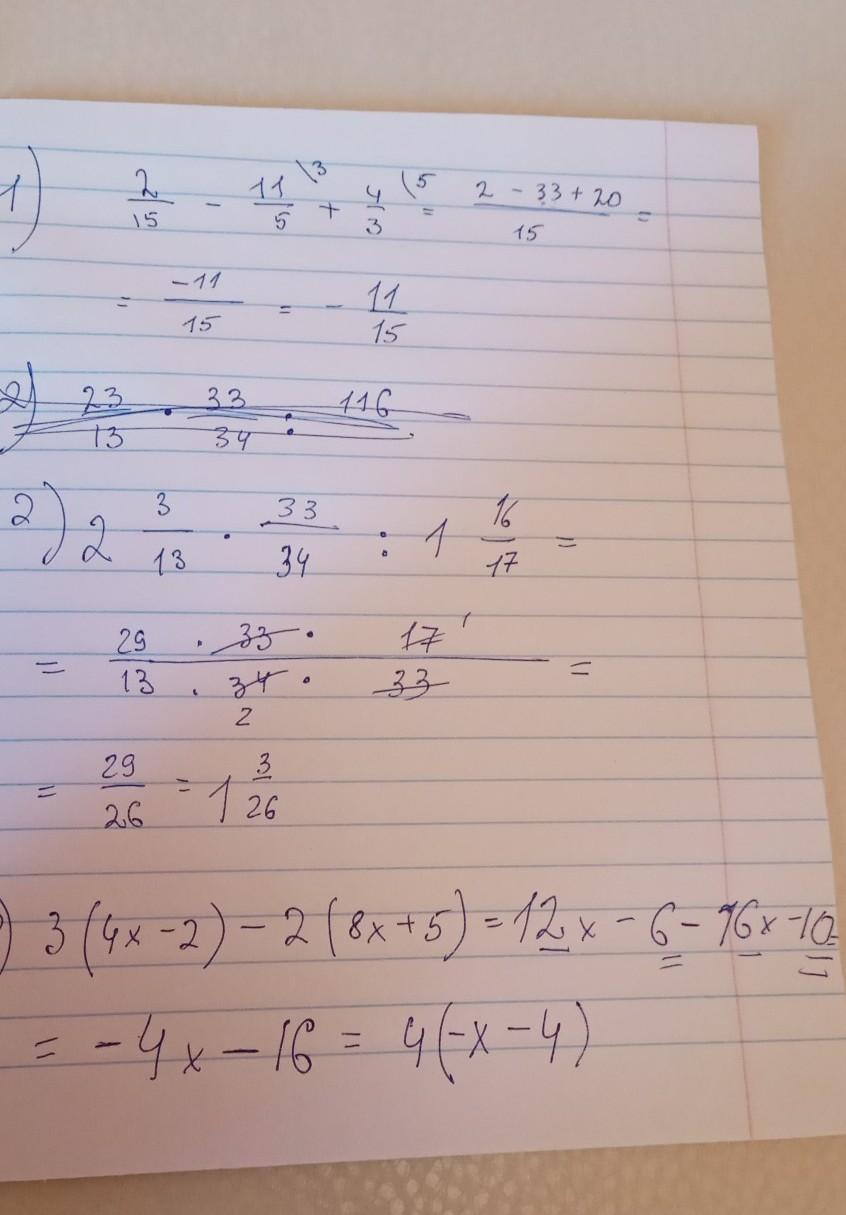 1) 2/15 - 11/5 \3 + 4/3 \5 = (2 - 33 + 20)/15 =
= -11/15 = - 11/15
2) 23/13 · 33/34 : 116
2) 2 3/13 · 33/34 : 1 16/17 =
= (29 · 33 · 17 1)/(13 · 34 2 · 33) =
= 29/26 = 1 3/26
) 3(4x-2) - 2(8x+5) = 12x - 6 - 16x - 10 =
= -4x - 16 = 4(-x - 4)